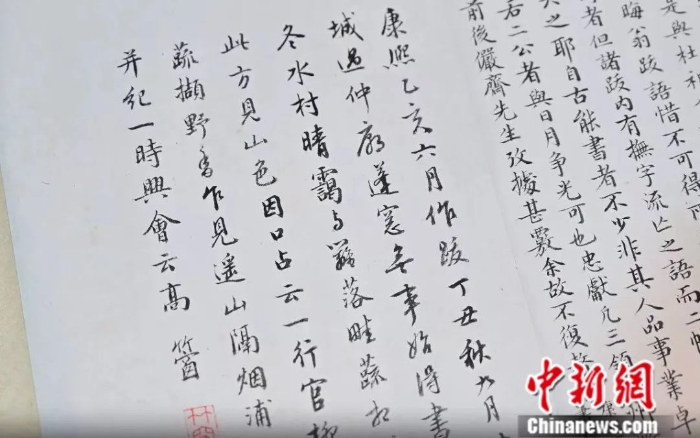 是與杜祁
晦翁跋語惜不可得
者但諸跋內有撫字流亡之語而二帖
之耶自古能書者不少非其人品事業卓
右二公者與日月爭光可也忠獻凡三領
前後儼齋先生攷據甚覈余故不復
康熙乙亥六月作跋丁丑秋九月
城過仲廓蓬窓無事始得書
冬水村晴靄與籬落畦蔬相
此方見山色因口占云一行官柳
蔬擷野香乍見遥山隔烟浦
并紀一時興會云高
中新网
Chinanews.com